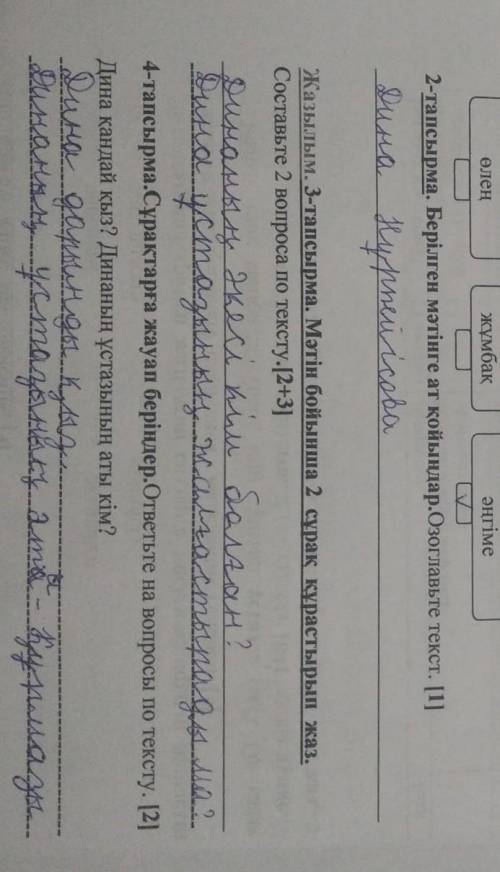 өлең
жұмбақ
әңгіме
✓
2-тапсырма. Берілген мәтінге ат қойыңдар.Озоглавьте текст. [1]
Дина Нұрпейісова
Жазылым. 3-тапсырма. Мәтін бойынша 2 сұрақ құрастырып жаз.
Составьте 2 вопроса по тексту.[2+3]
Динаның әкесі кім болған?
Дина ұстазының жалғастырады ма?
4-тапсырма.Сұрақтарға жауап беріңдер.Ответьте на вопросы по тексту. [2]
Дина қандай қыз? Динаның ұстазының аты кім?
Дина дарынды қыз.
Динаның ұстазының аты - Құрмазы